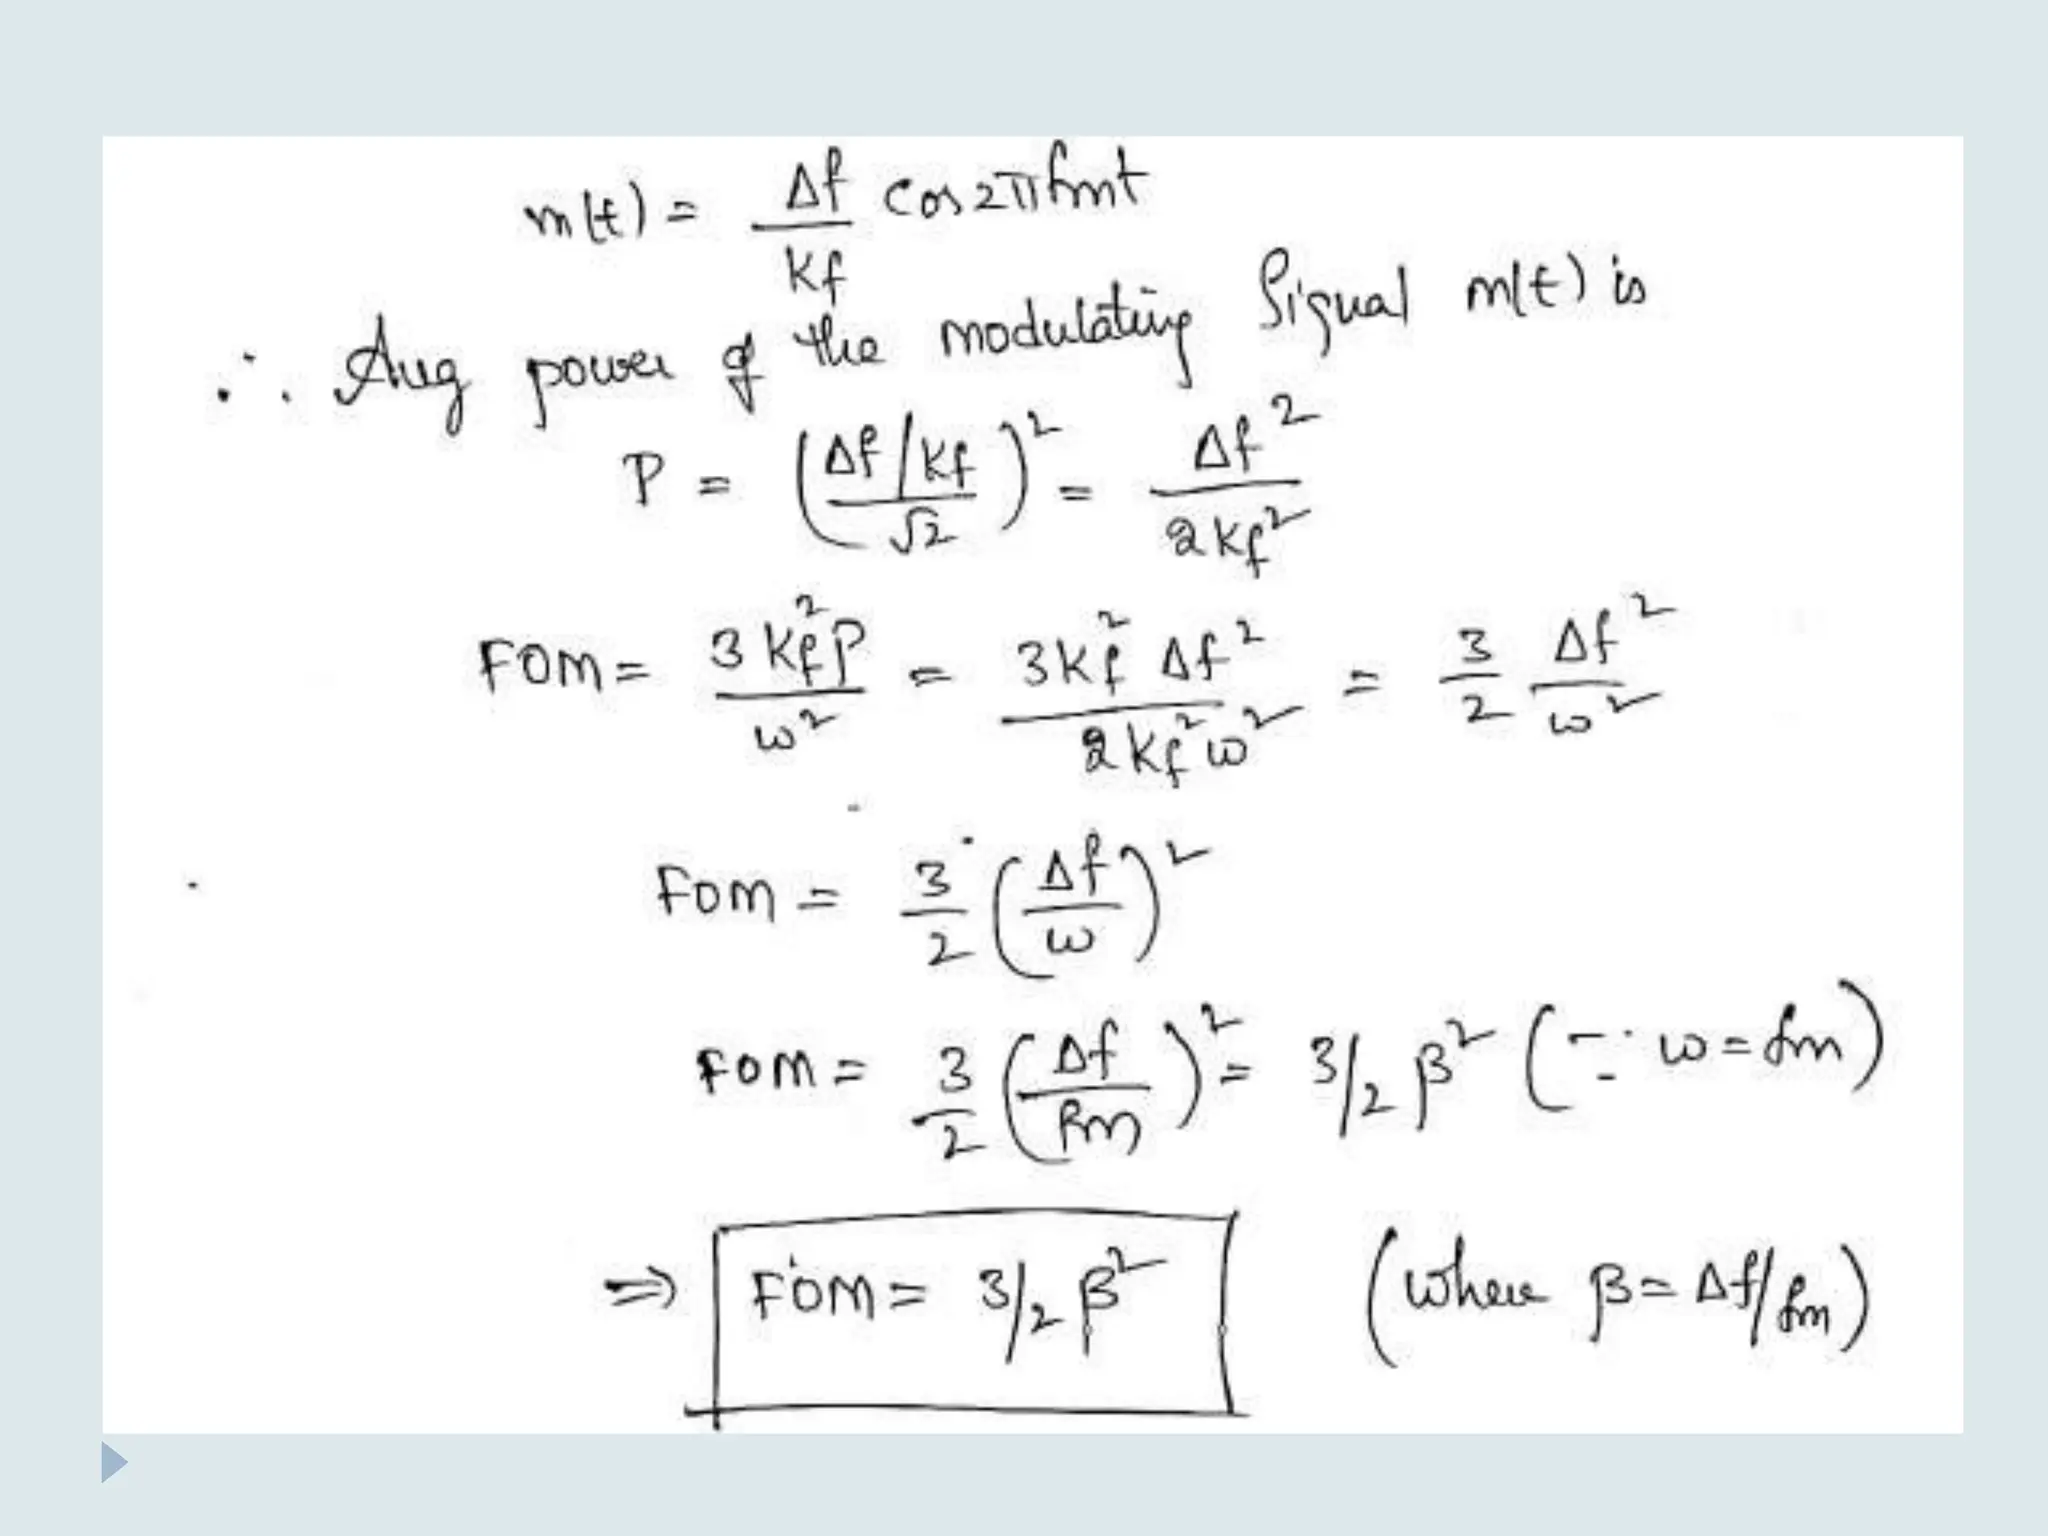 m(t) = Δf/kf cos2πfmt
∴ Avg power of the modulating signal m(t) is
P = ((Δf/kf)/√2)² = Δf²/2kf²
FOM = 3kf²P/w² = 3kf² Δf²/2kf²w² = 3/2 Δf²/w²
FOM = 3/2 (Δf/w)²
FOM = 3/2 (Δf/fm)² = 3/2 β² (∵ w = fm)
⇒ FOM = 3/2 β² (where β = Δf/fm)